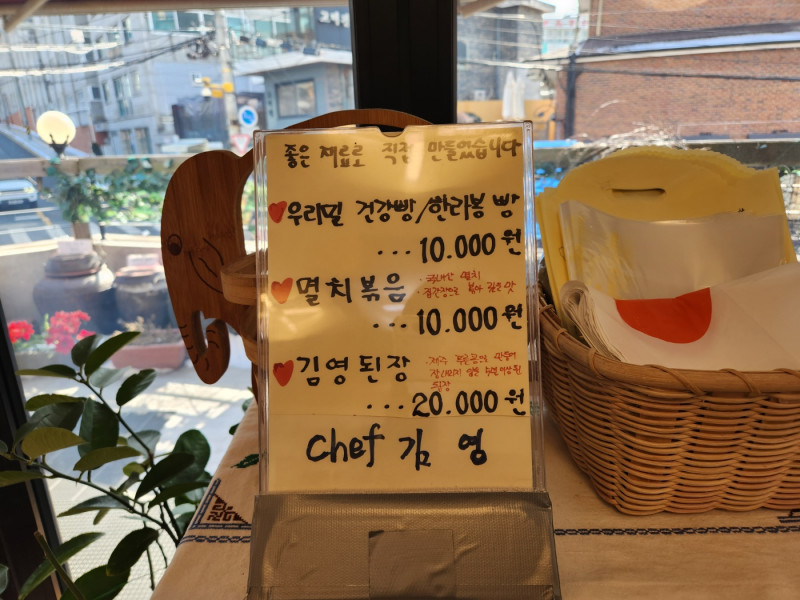 좋은 재료로 직접 만들었습니다
우리밀 건강빵/한라봉 빵
... 10.000 원
멸치볶음
· 국내산 멸치
... 10.000 원
김영된장
... 20.000 원
chef 김 영